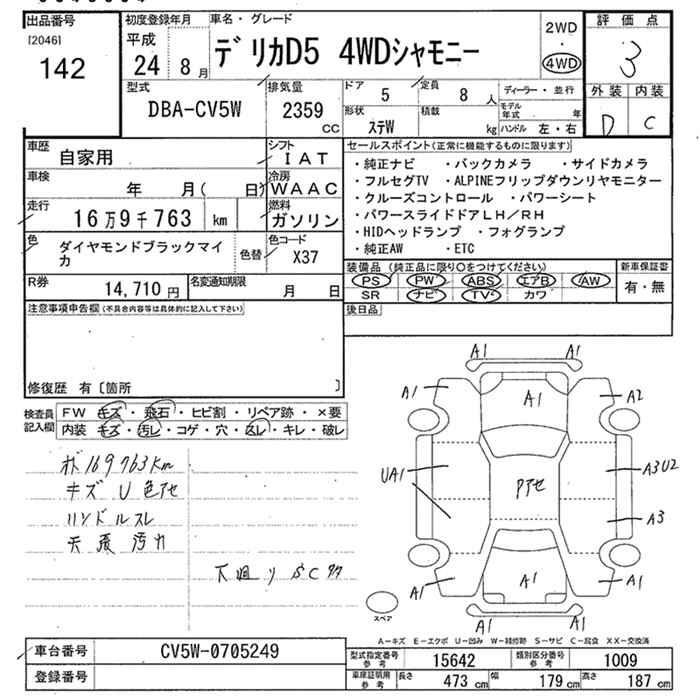 出品番号
[2046]
142
初度登録年月
平成
24年 8月
車名・グレード
デリカD5 4WDシャモニー
2WD
・
4WD
評価点
3
外装 内装
D C
型式
DBA-CV5W
排気量
2359
CC
ドア 5
形状 ステW
定員 8 人
積載 kg
ディーラー・並行
モデル年式 年
ハンドル 左・右
車歴
自家用
シフト
IAT
車検
年 月( 日)
冷房
WAAC
走行
16万9千763 km
燃料
ガソリン
色
ダイヤモンドブラックマイカ
色替
色コード
X37
R券
14,710円
名変通知期限
月 日
セールスポイント(正常に機能するものに限ります)
・純正ナビ ・バックカメラ ・サイドカメラ
・フルセグTV ・ALPINEフリップダウンリヤモニター
・クルーズコントロール ・パワーシート
・パワースライドドアLH/RH
・HIDヘッドランプ ・フォグランプ
・純正AW ・ETC
装備品(純正品に限り○をつけてください)
PS PW ABS エアB AW
SR ナビ TV カワ
新車保証書
有・無
後日品
注意事項申告欄(不具合内容等は具体的に記入して下さい)
修復歴 有〔箇所 〕
検査員記入欄
FW キズ・飛石・ヒビ割・リペア跡・×要
内装 キズ・汚レ・コゲ・穴・スレ・キレ・破レ
メーター 169763km
キズ U 色アセ
ハンドルスレ
天張汚れ
下廻り SC
A1 A1
A1 A1 A2
UA1 Pアセ A3U2
A3
A1 A1 A1
A1 A1
スペア
A-キズ E-エクボ U-凹み W-補修跡 S-サビ C-腐食 XX-交換済
車台番号
CV5W-0705249
登録番号
型式指定番号
参考
15642
類別区分番号
参考
1009
車庫証明用
参考
長さ 473 cm 幅 179 cm 高さ 187 cm